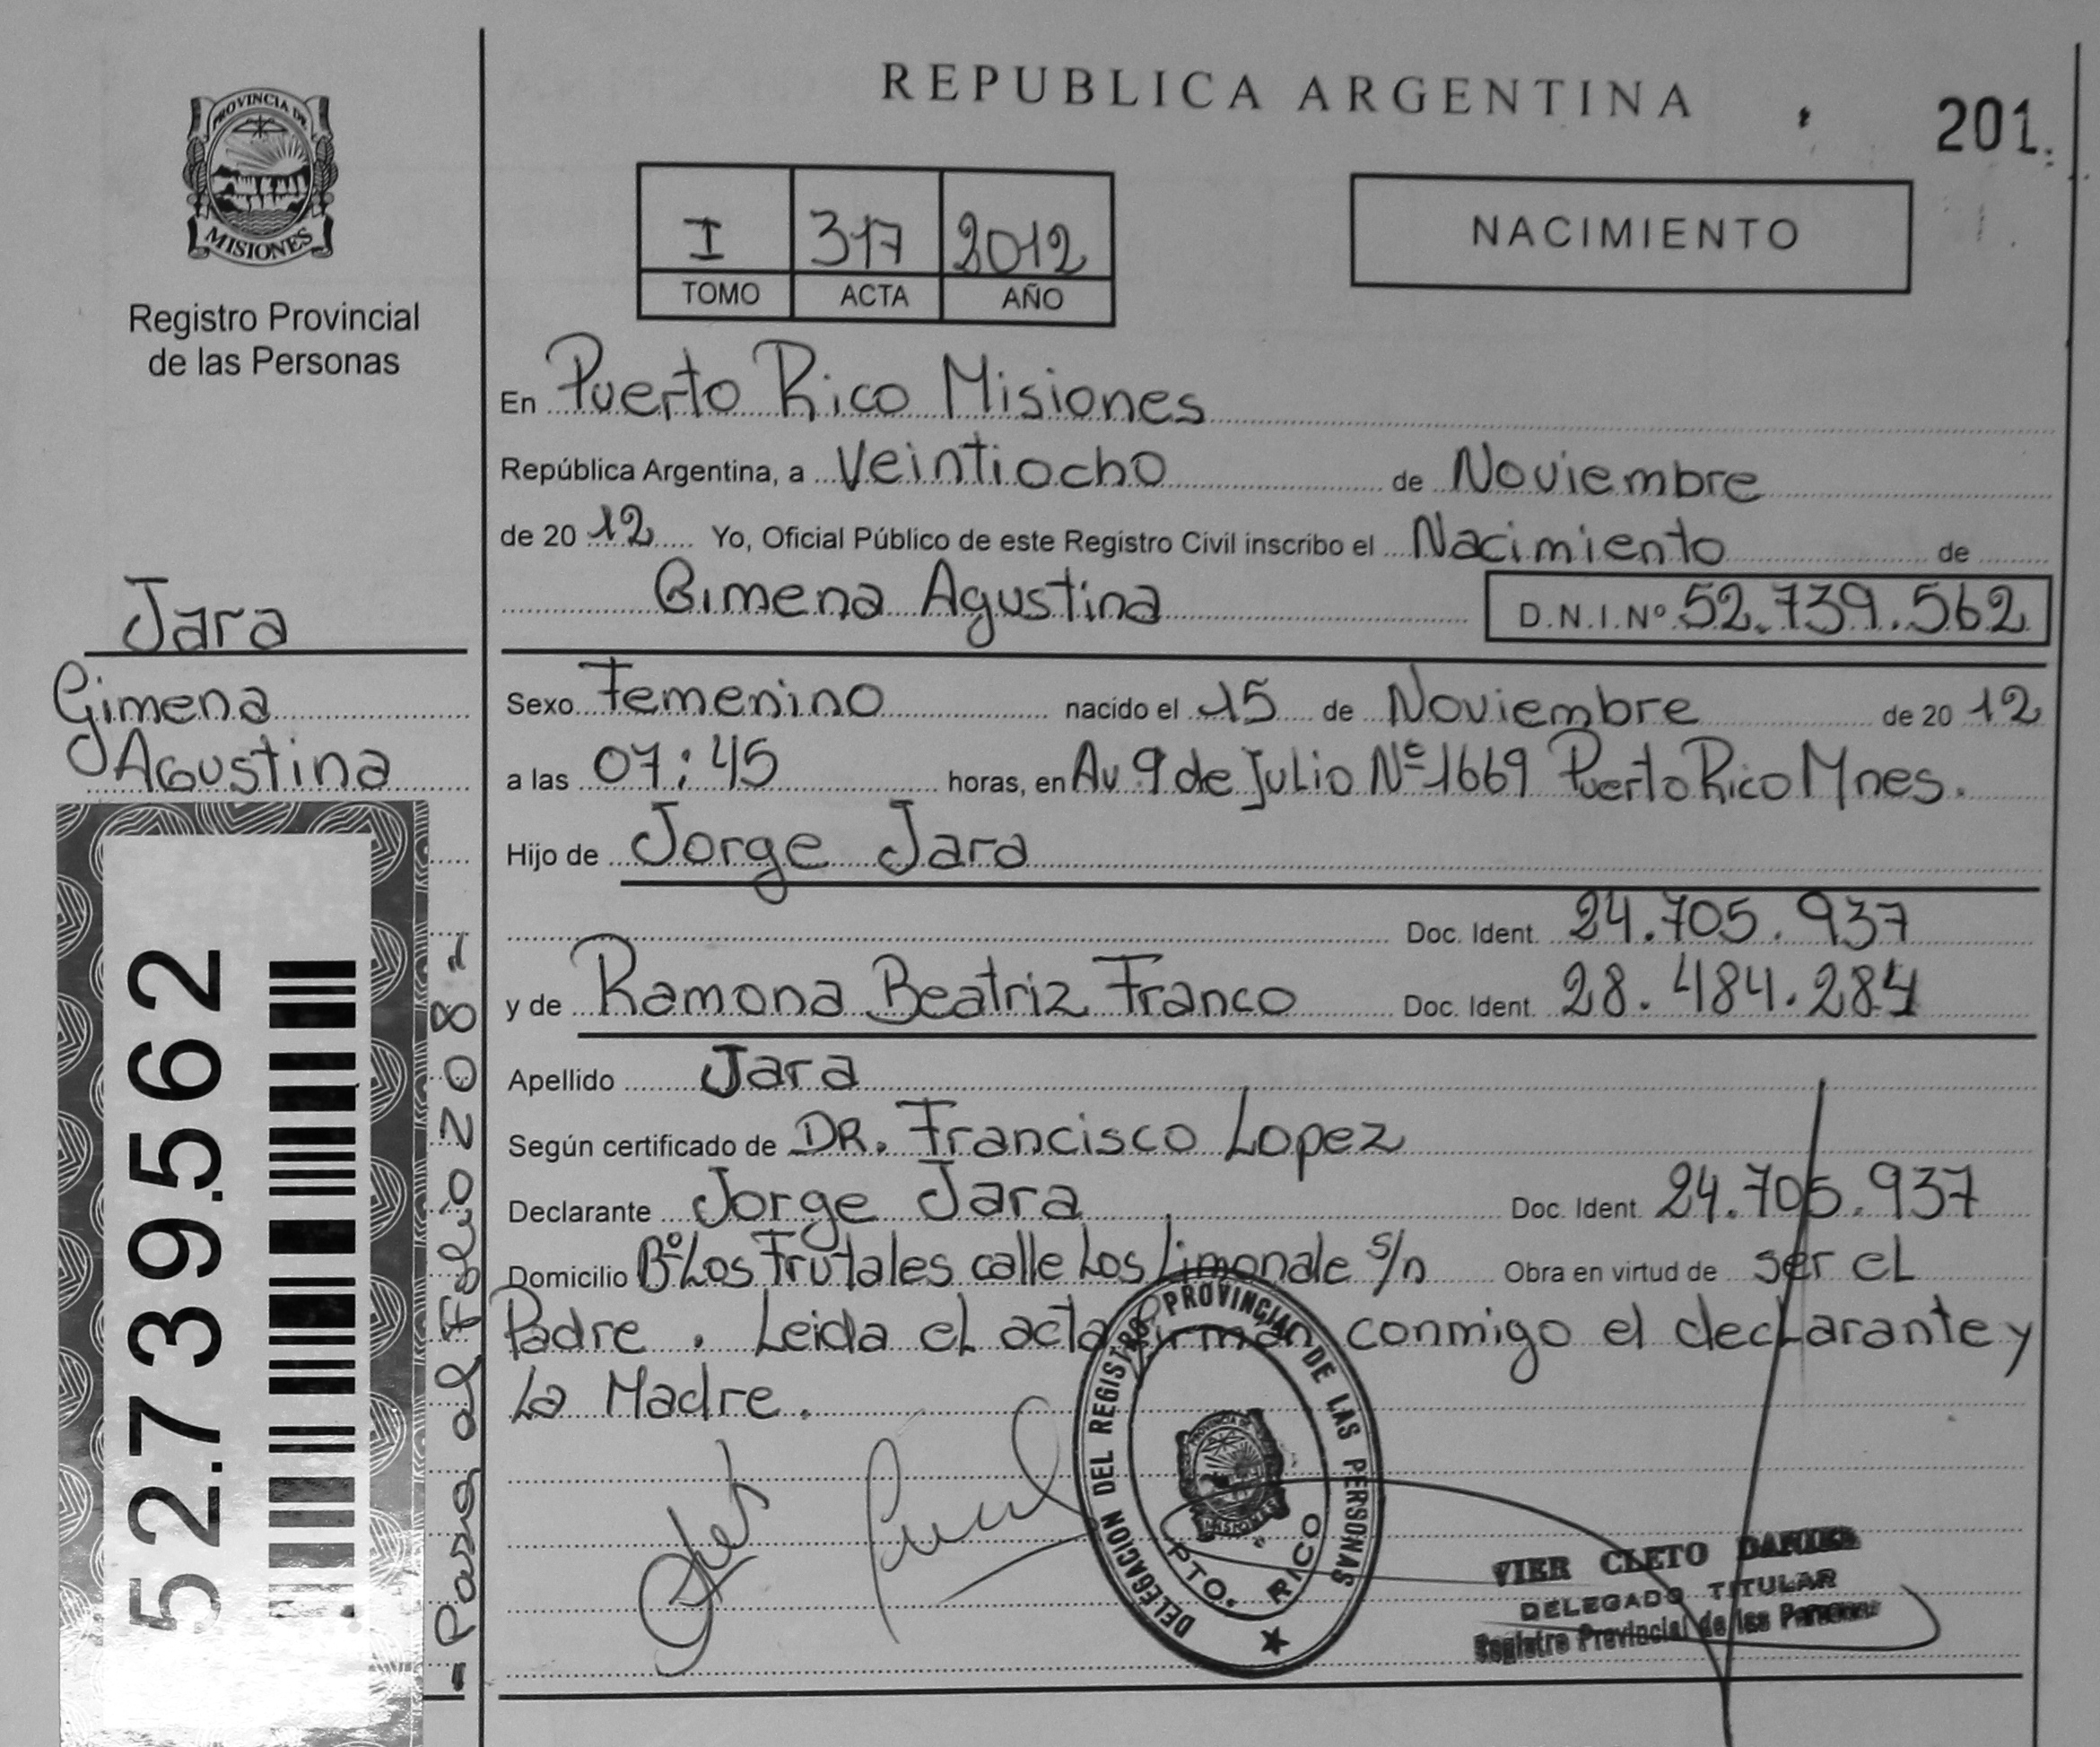 REPUBLICA ARGENTINA
201
PROVINCIA DE
MISIONES
Registro Provincial
de las Personas
I 317 2012
TOMO ACTA AÑO
NACIMIENTO
En Puerto Rico Misiones
República Argentina, a Veintiocho de Noviembre
de 20 12 Yo, Oficial Público de este Registro Civil inscribo el Nacimiento de
Gimena Agustina D.N.I.Nº 52.739.562
Jara
Gimena
Agustina
Sexo Femenino nacido el 15 de Noviembre de 20 12
a las 07:45 horas, en Av 9 de Julio Nº 1669 Puerto Rico Mnes.
Hijo de Jorge Jara
Doc. Ident. 24.705.937
y de Ramona Beatriz Franco Doc. Ident. 28.484.284
Apellido Jara
Según certificado de DR. Francisco Lopez
Declarante Jorge Jara Doc. Ident. 24.705.937
Domicilio Bº Los Frutales calle Los Limonale s/n Obra en virtud de ser el
Padre. Leida el acta firman conmigo el declarante y
La Madre.
52.739.562
- Pasa al Folio 208 -
DELEGACION DEL REGISTRO PROVINCIAL DE LAS PERSONAS
PTO. RICO
VIER CLETO DANIEL
DELEGADO TITULAR
Registro Provincial de las Personas